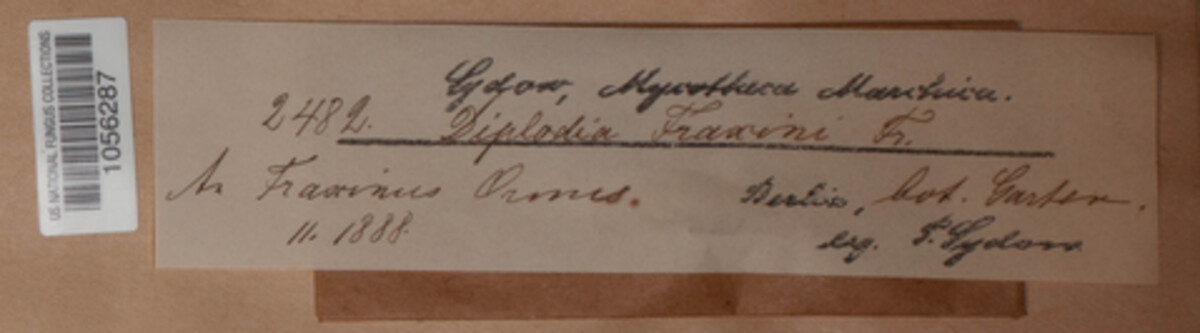 US NATIONAL FUNGUS COLLECTIONS
1056287
Sydow, Mycotheca Marchica.
2482. Diplodia Fraxini Fr.
An Fraxinus Ornus. Berlin, bot. Garten.
11. 1888. leg. P. Sydow